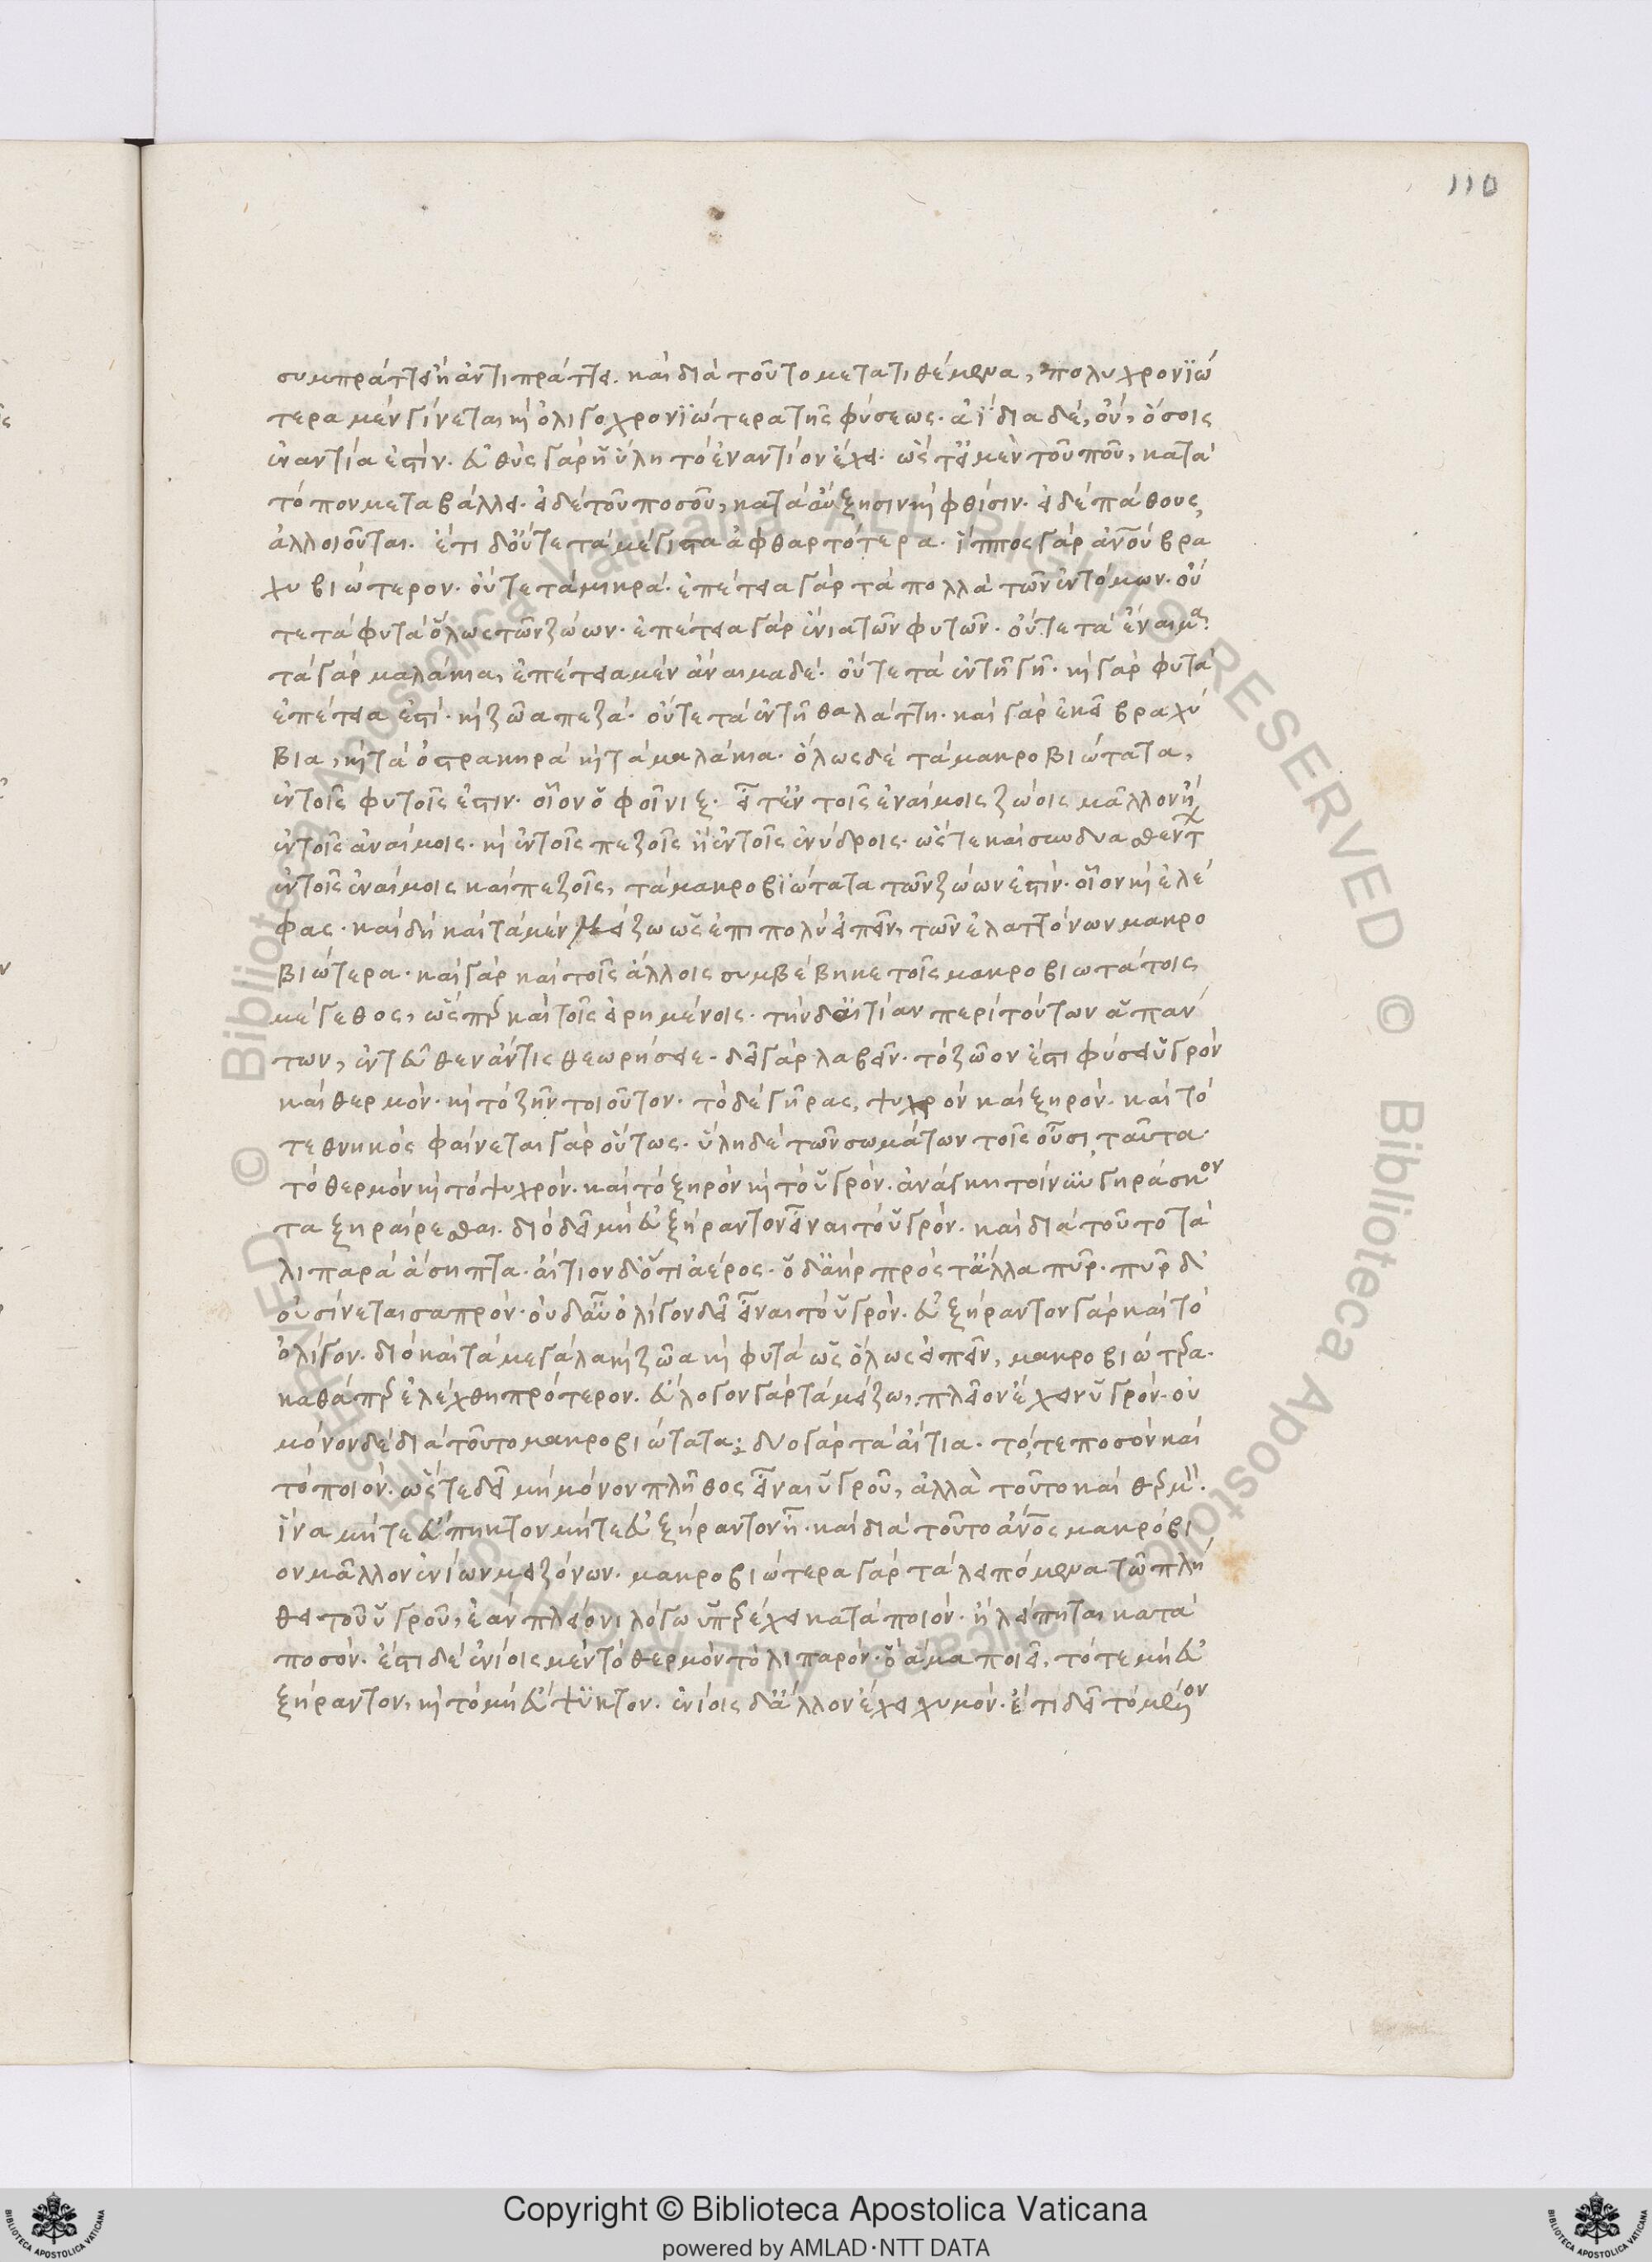 110
συμπράττει ἢ ἀντιπράττει. καὶ διὰ τοῦτο μετατιθέμενα, πολυχρονϊώ
τερα μὲν γίνεται κὶ ὀλιγοχρονϊώτερα τῆς φύσεως. ἀΐδια δὲ, οὐ, ὅσοις
ἐναντία ἐστίν. εὐθὺς γὰρ ἡ ὕλη τὸ ἐναντίον ἔχει. ὥστ εἰ μὲν τοῦ ποῦ, κατὰ
τόπον μεταβάλλει. εἰ δὲ τοῦ ποσοῦ, κατὰ αὔξησιν κὶ φθίσιν. εἰ δὲ πάθους,
ἀλλοιοῦται. ἔτι δ' οὔτε τὰ μέγιστα ἀφθαρτότερα. ἵππος γὰρ ἀνοῦ βρα
χυβιώτερον. οὔτε τὰ μικρά. ἐπέτεια γὰρ τὰ πολλὰ τῶν ἐντόμων. οὔ
τε τὰ φυτὰ ὅλως τῶν ζώων. ἐπέτεια γὰρ ἔνια τῶν φυτῶν. οὔτε τὰ ἔναιμα.
τὰ γὰρ μαλάκια, ἐπέτεια μὲν ἄναιμα δέ. οὔτε τὰ ἐν τῆ γῆ. κὶ γὰρ φυτὰ
ἐπέτεια ἐστὶ. κὶ ζῶα πεζά. οὔτε τὰ ἐν τῆ θαλάττη. καὶ γὰρ ἐκεῖ βραχύ
βια, κὶ τὰ ὀστρακηρὰ κὶ τὰ μαλάκια. ὅλως δὲ τὰ μακροβιώτατα,
ἐν τοῖς φυτοῖς ἐστιν. οἷον ὁ φοῖνιξ. εἶτ' ἐν τοῖς ἐναίμοις ζώοις μᾶλλον ἢ
ἐν τοῖς ἀναίμοις. κὶ ἐν τοῖς πεζοῖς ἢ ἐν τοῖς ἐνύδροις. ὥστε καὶ συνδυασθέντ
ἐν τοῖς ἐναίμοις καὶ πεζοῖς, τὰ μακροβϊώτατα τῶν ζώων ἐστίν. οἷον κὶ ἐλέ
φας. καὶ δὴ καὶ τὰ μὲν μείζω ὡς ἐπιπολὺ εἰπεῖν, τῶν ἐλαττόνων μακρο
βιώτερα. καὶ γὰρ καὶ τοῖς ἄλλοις συμβέβηκε τοῖς μακροβιωτάτοις
μέγεθος, ὥσπερ καὶ τοῖς εἰρημένοις. τὴν δ' αἰτίαν περὶ τούτων ἁπάν
των, ἐντεῦθεν ἄν τις θεωρήσειε. δεῖ γὰρ λαβεῖν. τὸ ζῶον ἐστι φύσει ὑγρὸν
καὶ θερμὸν. κὶ τὸ ζῆν τοιοῦτον. τὸ δὲ γῆρας, ψυχρὸν καὶ ξηρόν. καὶ τὸ
τεθνηκὸς φαίνεται γὰρ οὕτως. ὕλη δὲ τῶν σωμάτων τοῖς οὖσι, ταῦτα.
τὸ θερμὸν κὶ τὸ ψυχρὸν. καὶ τὸ ξηρὸν κὶ τὸ ὑγρὸν. ἀνάγκη τοίνυν γηράσκον
τα ξηραίνεσθαι. διὸ δεῖ μὴ εὐξήραντον εἶναι τὸ ὑγρόν. καὶ διὰ τοῦτο τὰ
λιπαρὰ ἄσηπτα. αἴτιον δ' ὅτι ἀέρος. ὁ δ' ἀὴρ πρὸς τἄλλα πῦρ. πῦρ δ'
οὐ γίνεται σαπρόν. οὐδ' αὖ ὀλίγον δεῖ εἶναι τὸ ὑγρὸν. εὐξήραντον γὰρ καὶ τὸ
ὀλίγον. διὸ καὶ τὰ μεγάλα κὶ ζῶα κὶ φυτὰ ὡς ὅλως εἰπεῖν, μακροβιώτερα.
καθάπερ ἐλέχθη πρότερον. εὔλογον γὰρ τὰ μείζω, πλεῖον ἔχειν ὑγρόν. οὐ
μόνον δὲ διὰ τοῦτο μακροβιώτατα; δύο γὰρ τὰ αἴτια. τό, τε ποσὸν καὶ
τὸ ποιόν. ὥστε δεῖ μὴ μόνον πλῆθος εἶναι ὑγροῦ, ἀλλὰ τοῦτο καὶ θερμόν.
ἵνα μήτε εὔπηκτον μήτε εὐξήραντον ἦ. καὶ διὰ τοῦτο ἄνος μακρόβι
ον μᾶλλον ἐνίων μειζόνων. μακροβιώτερα γὰρ τὰ λειπόμενα τῶ πλή
θει τοῦ ὑγροῦ, ἐὰν πλείονι λόγω ὑπερέχει κατὰ ποιόν. ἢ λείπηται κατὰ
ποσόν. ἔστι δὲ ἐνίοις μὲν τὸ θερμὸν τὸ λιπαρὸν. ὃ ἅμα ποιεῖ, τό τε μὴ εὐ
ξήραντον, κὶ τὸ μὴ εὔψυκτον. ἐνίοις δ' ἄλλον ἔχει χυμόν. ἔτι δεῖ τὸ μέλλον
Copyright © Biblioteca Apostolica Vaticana
powered by AMLAD·NTT DATA